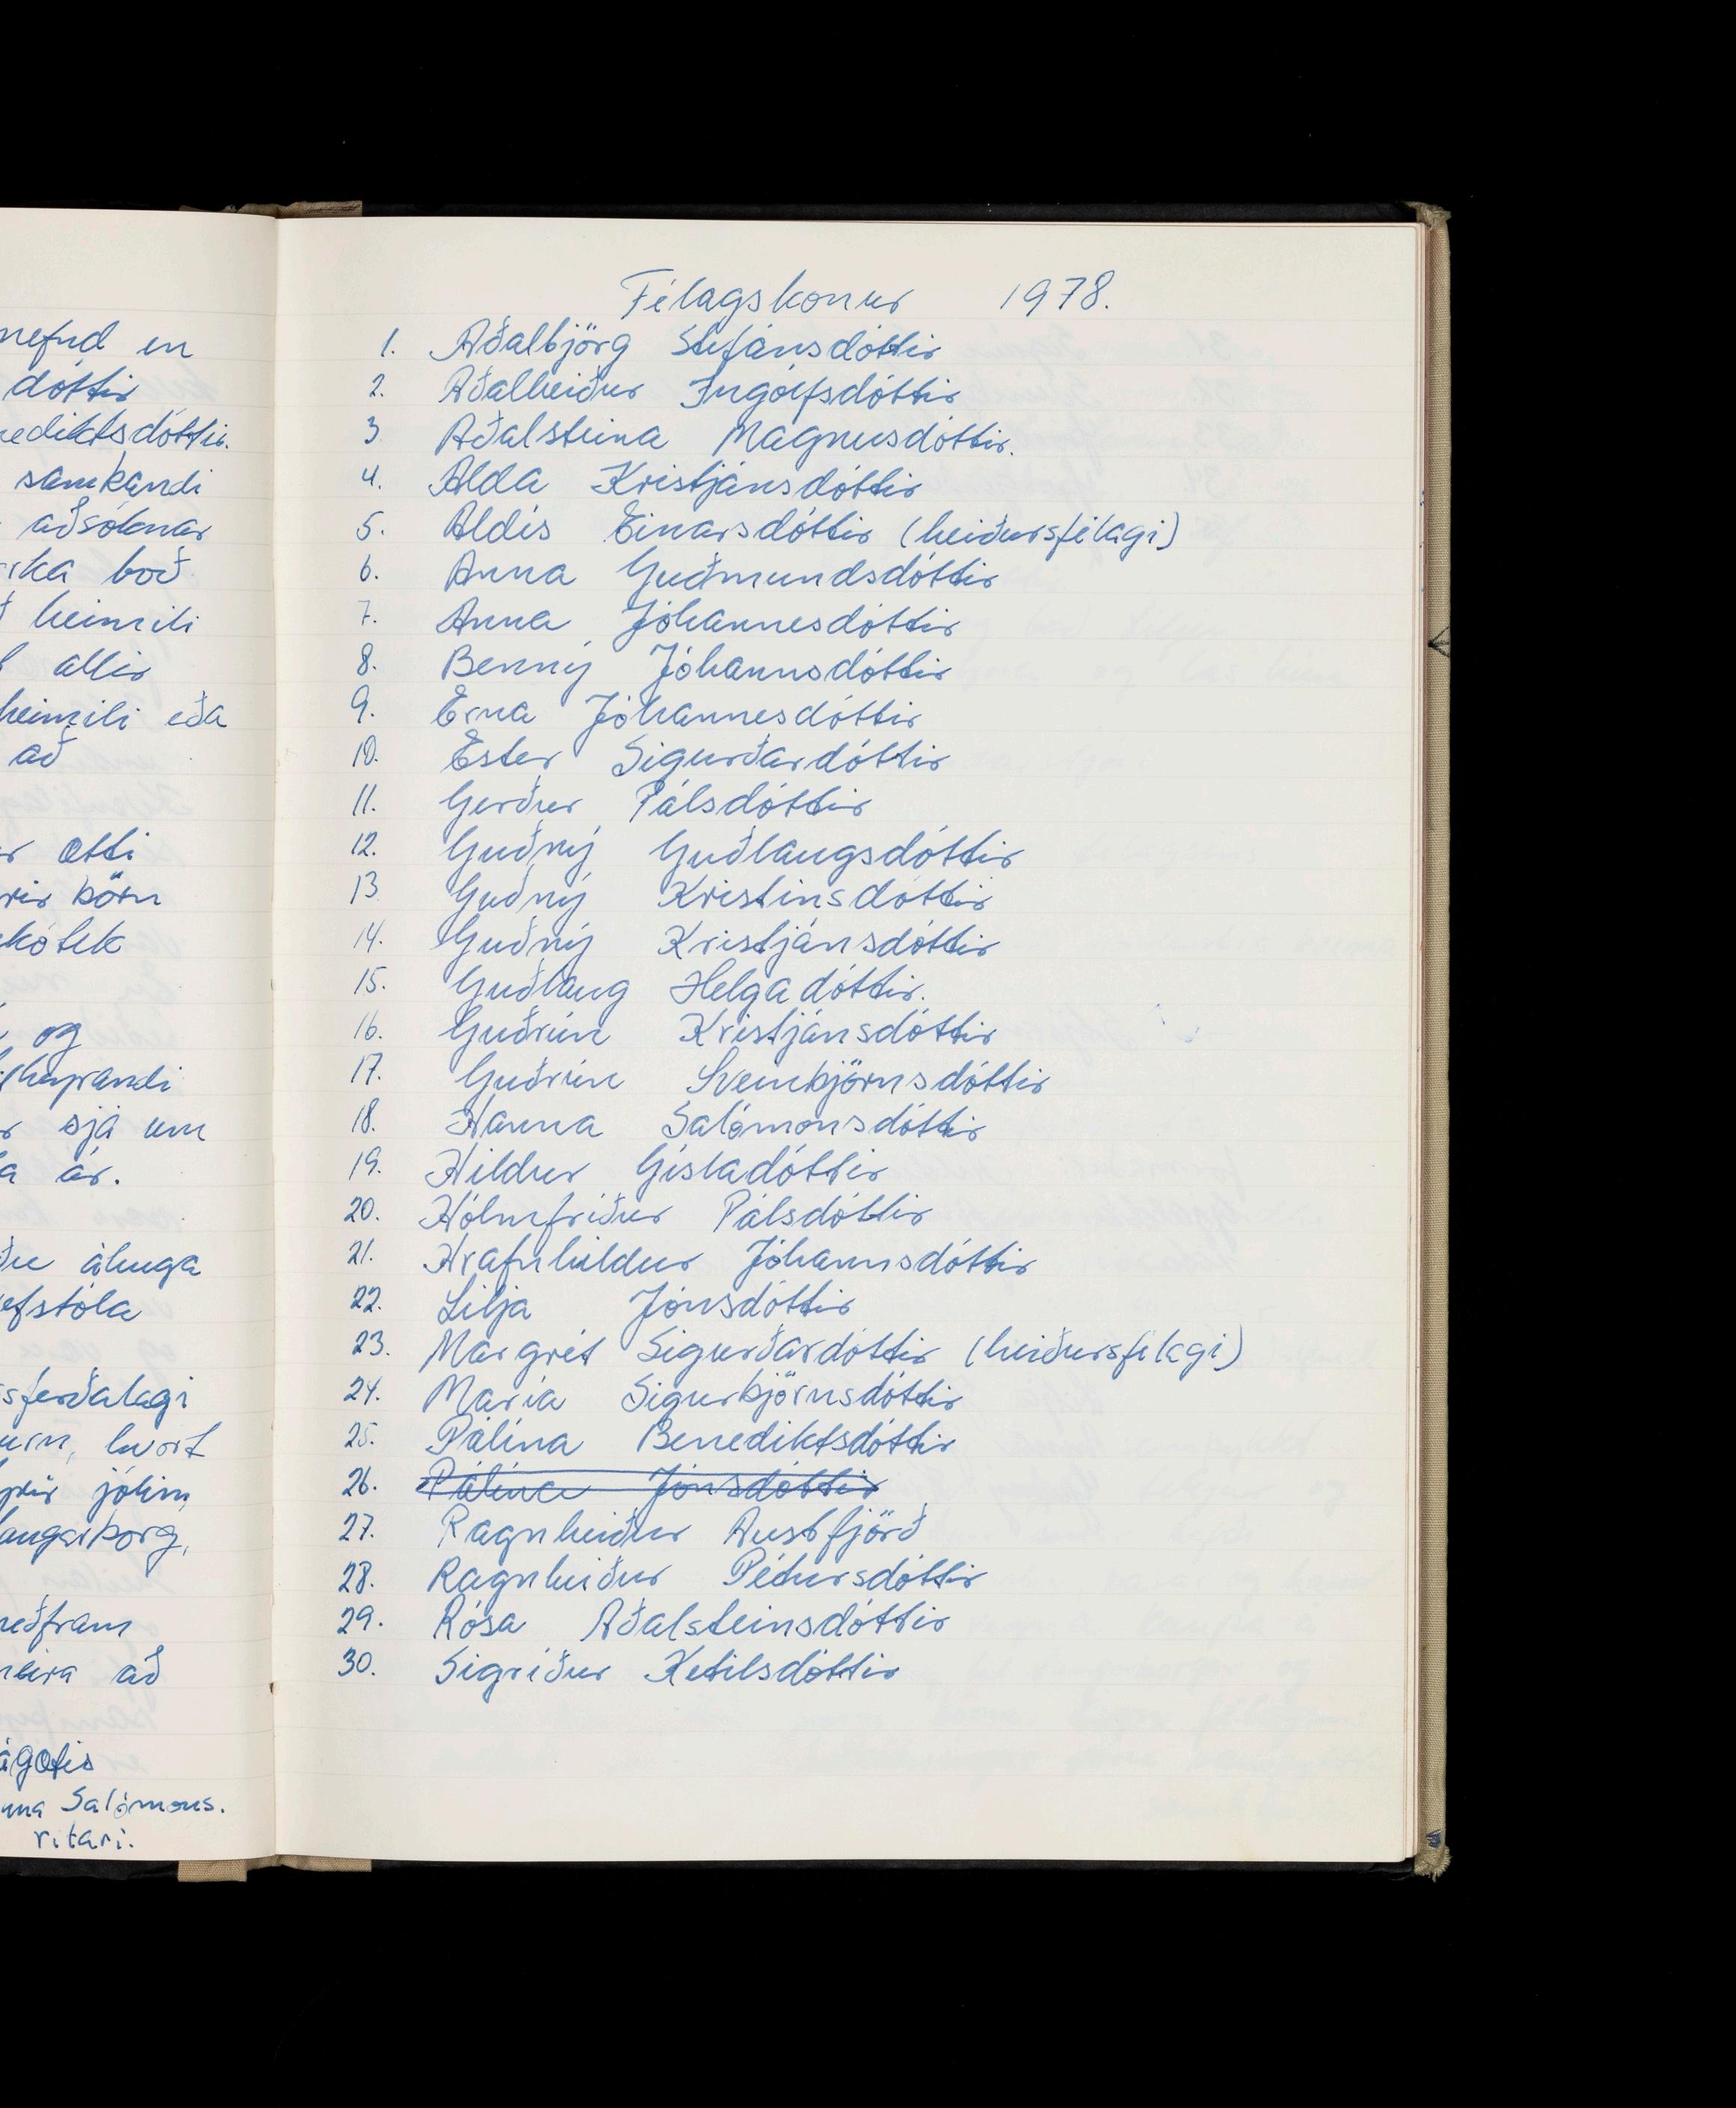 nefnd en
dóttir
nediktsdóttir.
samkandi
aðsóknar
rka boð
heimili
allir
heimili eða
að
r átti
rir börn
kótek
og
sjá um
a ár.
áhuga
efstóla
sferðalagi
urn, hvort
jólin
laugarborg,
neðfram
að
ágætis
nna Salómons.
ritari.
Félagskonur 1978.
1. Aðalbjörg Stefánsdóttir
2. Aðalheiður Ingólfsdóttir
3 Aðalsteina Magnúsdóttir.
4. Alda Kristjánsdóttir
5. Aldís Einarsdóttir (heiðursfélagi)
6. Anna Guðmundsdóttir
7. Anna Jóhannesdóttir
8. Benný Jóhannsdóttir
9. Erna Jóhannesdóttir
10. Ester Sigurðardóttir
11. Gerður Pálsdóttir
12. Guðný Guðlaugsdóttir
13 Guðný Kristinsdóttir
14. Guðný Kristjánsdóttir
15. Guðlaug Helgadóttir.
16. Guðrún Kristjánsdóttir
17. Guðrún Sveinbjörnsdóttir
18. Hanna Salómonsdóttir
19. Hildur Gísladóttir
20. Hólmfríður Pálsdóttir
21. Hrafnhildur Jóhannsdóttir
22. Lilja Jónsdóttir
23. Margrét Sigurðardóttir (heiðursfélagi)
24. María Sigurbjörnsdóttir
25. Pálína Benediktsdóttir
26. Pálína Jónsdóttir
27. Ragnheiður Austfjörð
28. Ragnheiður Pétursdóttir
29. Rósa Aðalsteinsdóttir
30. Sigríður Ketilsdóttir